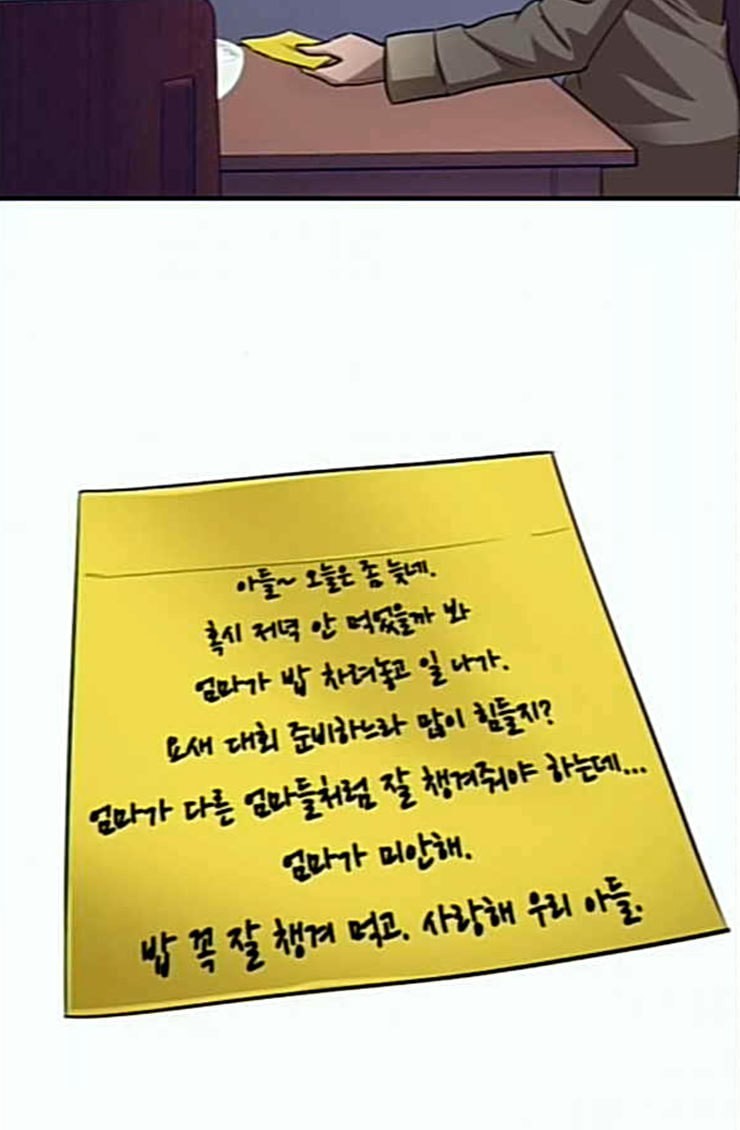 아들~ 오늘은 좀 늦네.
혹시 저녁 안 먹었을까 봐
엄마가 밥 차려놓고 일 나가.
요새 대회 준비하느라 많이 힘들지?
엄마가 다른 엄마들처럼 잘 챙겨줘야 하는데...
엄마가 미안해.
밥 꼭 잘 챙겨 먹고. 사랑해 우리 아들.